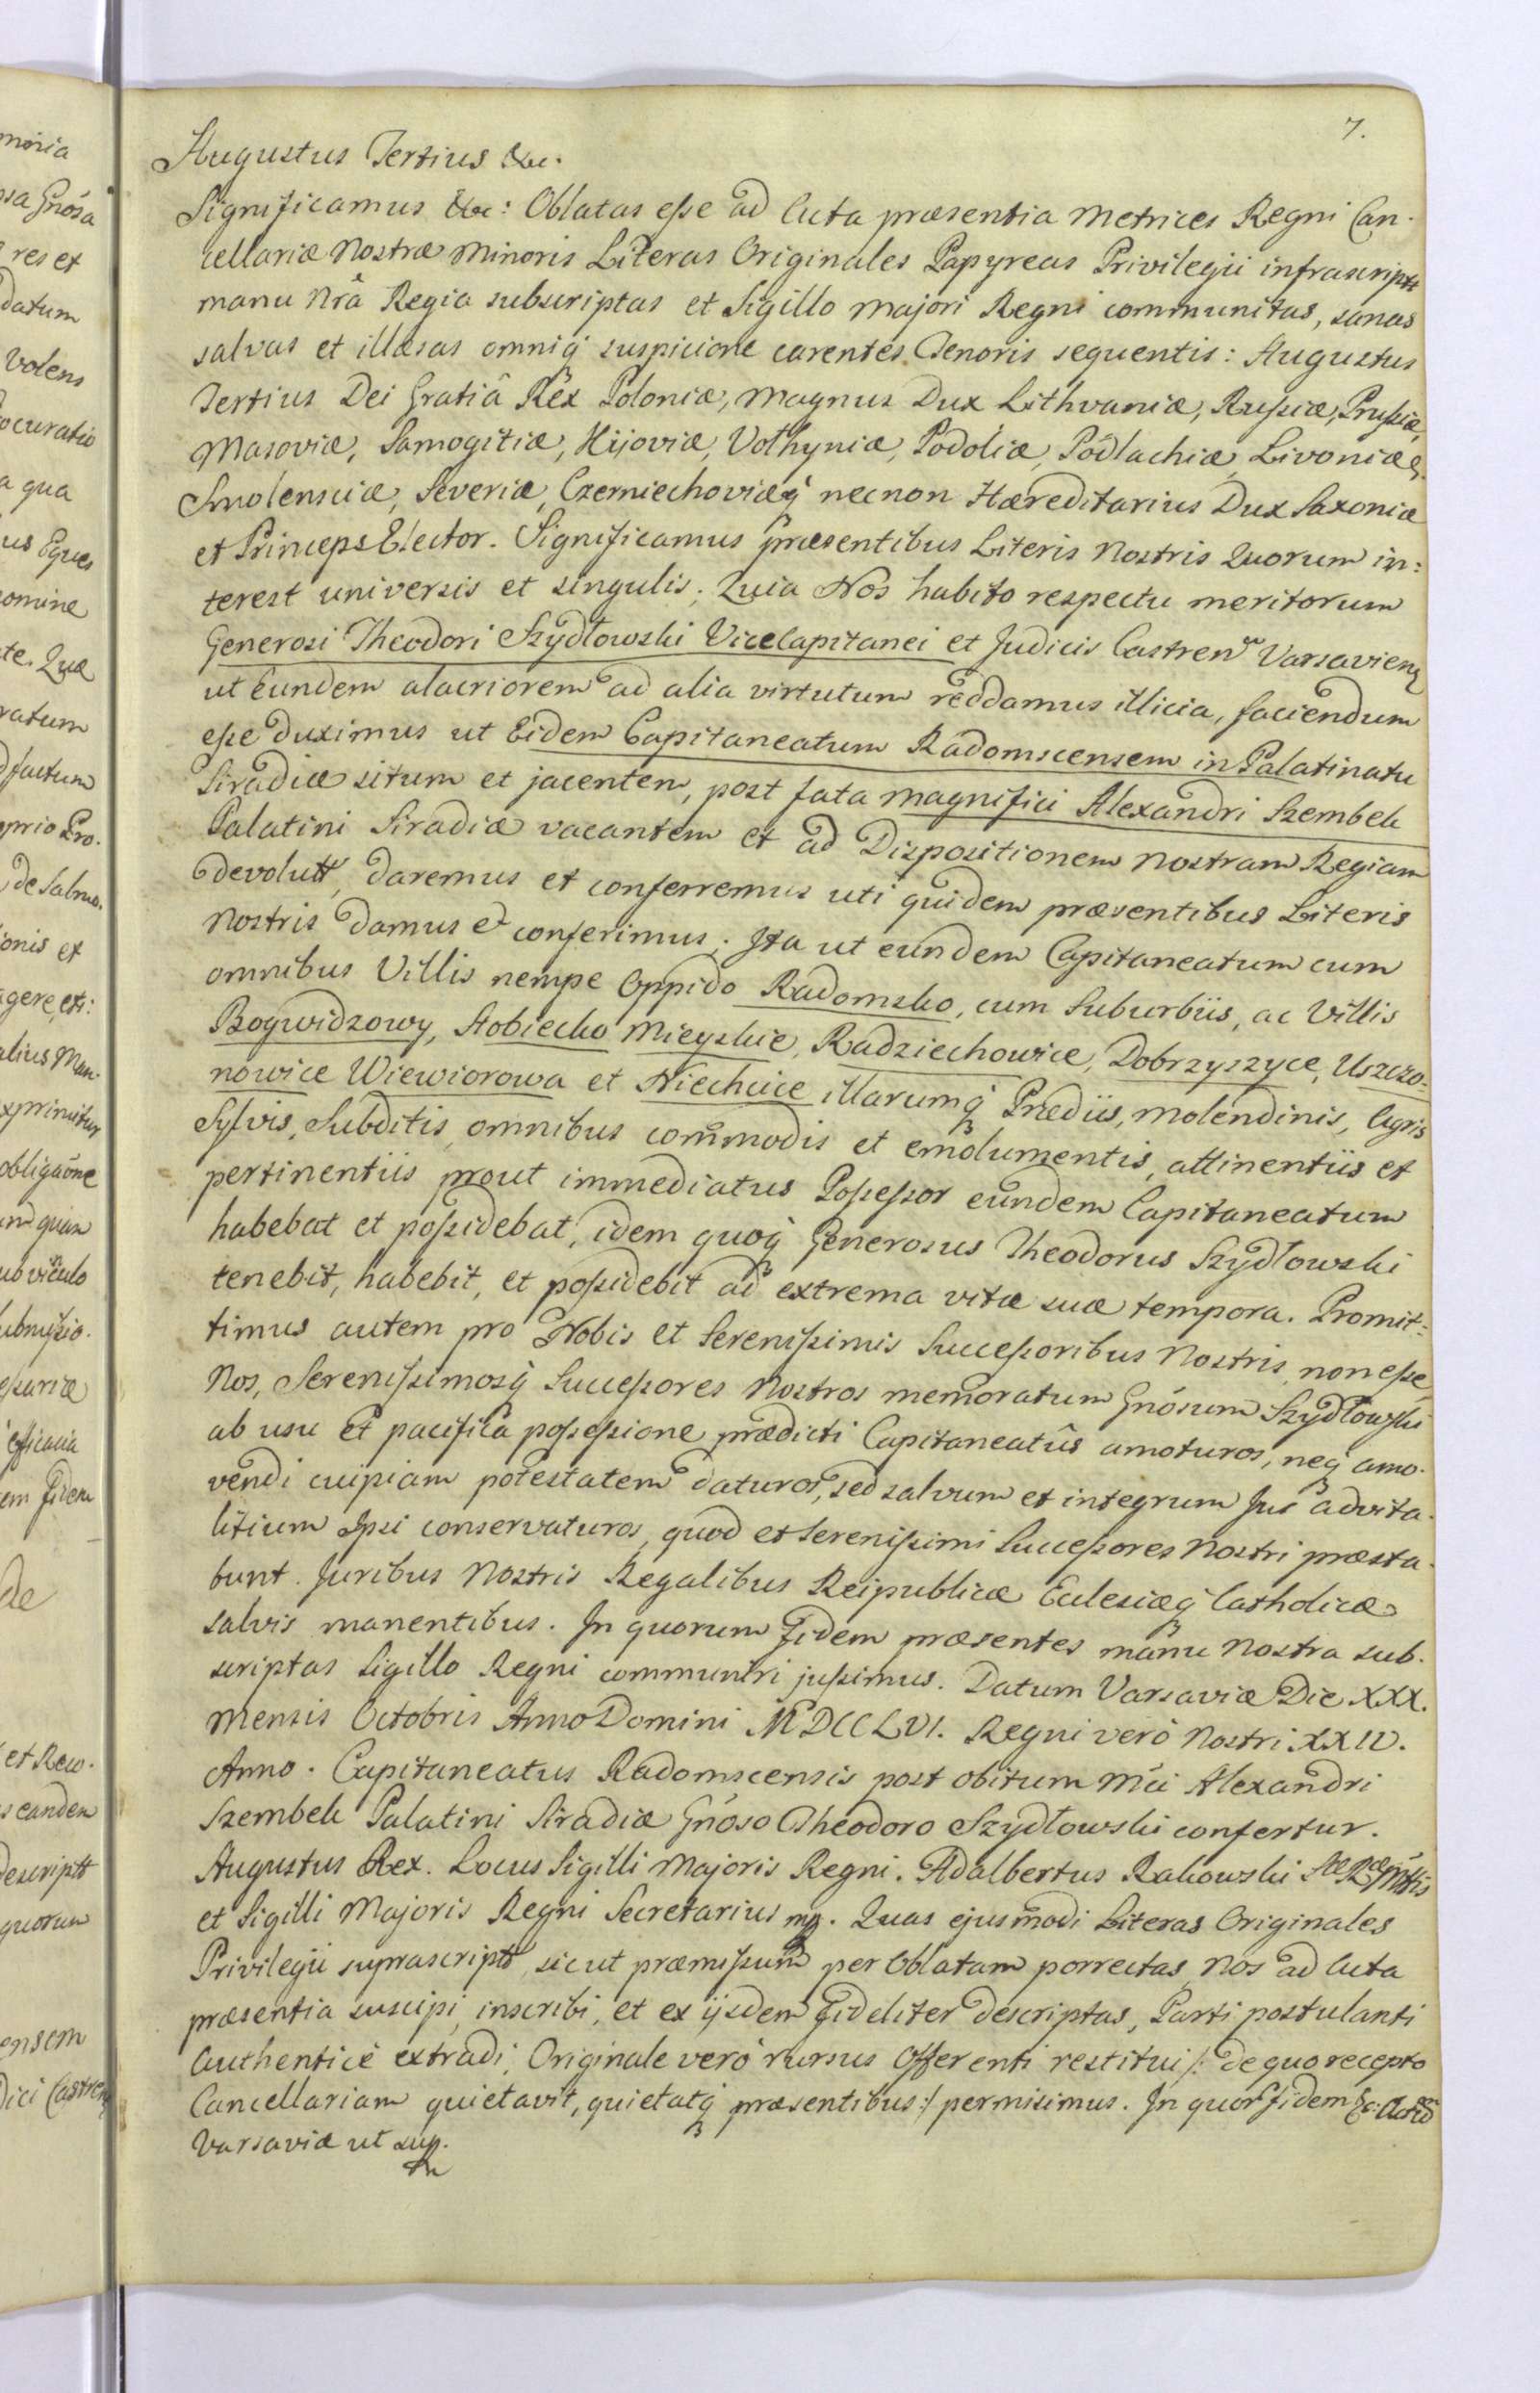 7.
Augustus Tertius &c.
Significamus &c: Oblatas eſse ad Acta præsentia Metrices Regni Can-
cellariæ Nostræ Minoris Literas Originales Papyreas Privilegii infrascriptt
manu Nrâ Regia subscriptas et Sigillo Majori Regni communitas, sanas
salvas et illæsas omniq̨ suspicione carentes Tenoris sequentis: Augustus
Tertius Dei Gratiâ Rex Poloniæ, Magnus Dux Lithvaniæ, Ruſsiæ, Pruſsiæ,
Masoviæ, Samogitiæ, Kijoviæ, Volhyniæ, Podoliæ, Podlachiæ, Livoniæ,
Smolensciæ, Severiæ, Czerniechoviæq̨ necnon Hæreditarius Dux Saxoniæ
et Princeps Elector. Significamus Præsentibus Literis Nostris Quorum in:
terest universis et singulis. Quia Nos habito respectu meritorum
Generosi Theodori Szydłowski Vicecapitanei et Judicis Castren Varsavien
ut Eundem alacriorem ad alia virtutum reddamus illicia, faciendum
eſse duximus ut Eidem Capitaneatum Radomscensem in Palatinatu
Siradiæ situm et jacentem, post fata Magnifici Alexandri Szembek
Palatini Siradiæ vacantem et ad Dispositionem Nostram Regiam
devolutt, daremus et conferremus uti quidem præsentibus Literis
Nostris damus et conferimus. Ita ut eundem Capitaneatum cum
omnibus Villis nempe Oppido Radomsko, cum Suburbiis, ac Villis
Bogwidzowy, Stobiecko Mieyskie, Radziechowice, Dobrzyszyce, Uszczo-
nowice Wiewiorowa et Niechcice illarumq̨ Prædiis, Molendinis, Agris
Sylvis, Subditis, omnibus com̃modis et emolumentis, attinentiis et
pertinentiis prout immediatus Poſseſsor eundem Capitaneatum
habebat et poſsidebat, idem quoq̨ Generosus Theodorus Szydłowski
tenebit, habebit, et poſsidebit ad extrema vitæ suæ tempora. Promit:
timus autem pro Nobis et Sereniſsimis Succeſsoribus Nostris, non eſse
Nos, Sereniſsimosq̨ Succeſsores Nostros memoratum Gnósum Szydłowski
ab usu et pacificâ poſseſsione prædicti Capitaneatûs amoturos, neq̨ amo-
vendi cuipiam potestatem daturos, sed salvum et integrum Jus advita-
litium Ipsi conservaturos, quod et Sereniſsimi Succeſsores Nostri præsta-
bunt. Juribus Nostris Regalibus Reipublicæ Eclesiæq̨ Catholicæ
salvis manentibus. In quorum fidem præsentes manu Nostra sub-
scriptas Sigillo Regni communiri juſsimus. Datum Varsaviæ Die XXX.
Mensis Octobris Anno Domini MDCCLVI. Regni verò Nostri XXIV.
Anno. Capitaneatus Radomscensis post obitum Mci Alexandri
Szembek Palatini Siradiæ Gnóso Theodoro Szydłowski confertur.
Augustus Rex. Locus Sigilli Majoris Regni. Adalbertus Rakowski Sæ Ræ Mttis
et Sigilli Majoris Regni Secretarius mp. Quas ejusmodi Literas Originales
Privilegii suprascriptt, sicut præmiſsum per Oblatam porrectas, Nos ad Acta
præsentia suscipi, inscribi, et ex ijsdem fideliter descriptas, Parti postulanti
Authenticè extradi, Originale verò rursus Offerenti restitui /: de quo recepto
Cancellariam quietavit, quietatq̨ præsentibus :/ permisimus. In quor fidem &c: Act
Varsaviæ ut sup.